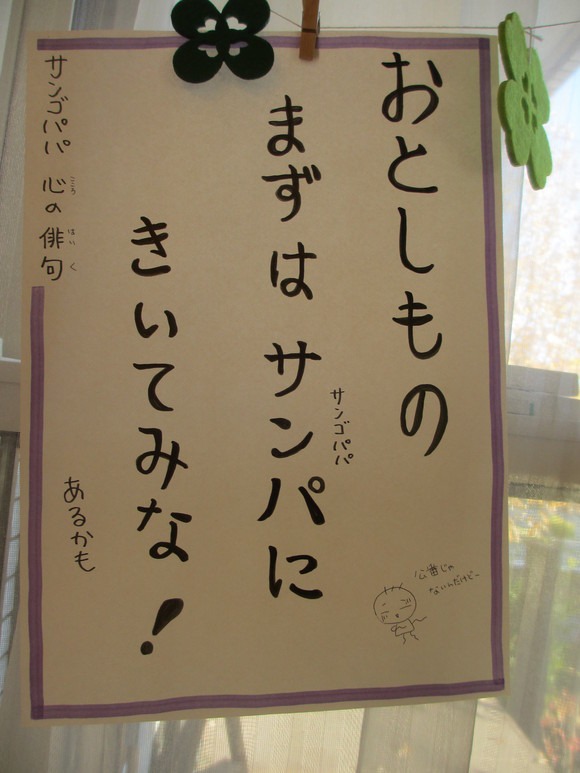 おとしもの
まずは サンパに
サンゴパパ
きいてみな!
あるかも
サンゴパパ 心の俳句
こころ
はいく
公番じゃ
ないんだけどー